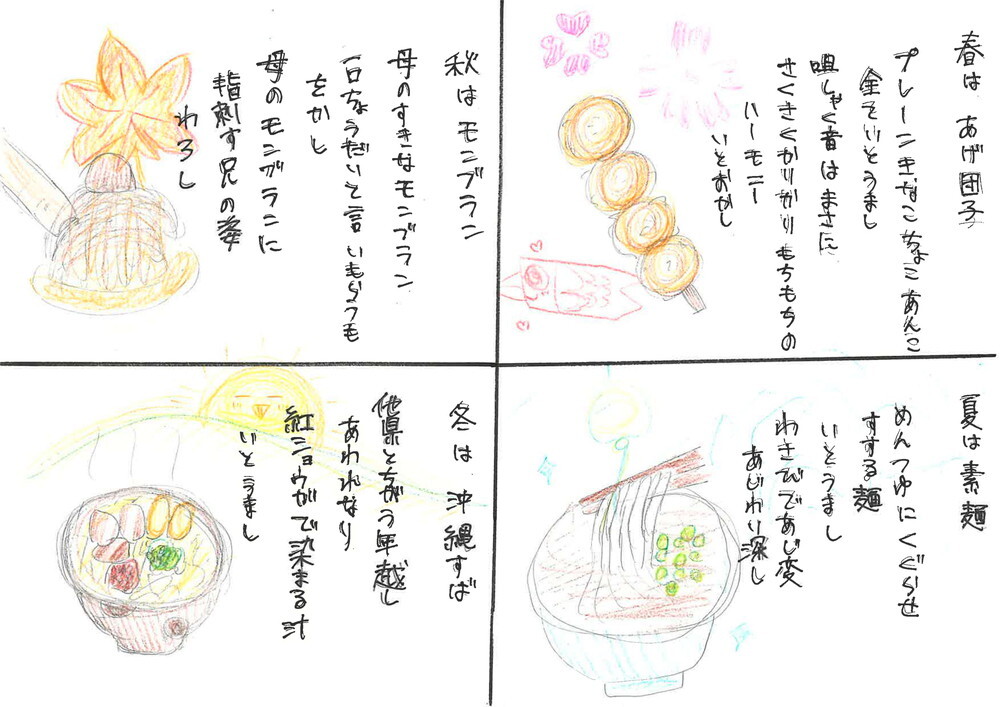 春は あげ団子
プレーンきなこちょこあんこ
全ていとうまし
咀しゃく音はまさに
さくさくかりかりもちもちの
ハーモニー
いとおかし
夏は素麺
めんつゆにくぐらせ
すする麺
いとうまし
わさびであじ変
あじわり深し
秋はモンブラン
母のすきなモンブラン
一口ちょうだいと言いもらうも
をかし
母のモンブランに
指刺す兄の姿
わろし
冬は 沖縄すば
他県とちがう年越し
あわれなり
紅ショウガで染まる汁
いとうまし